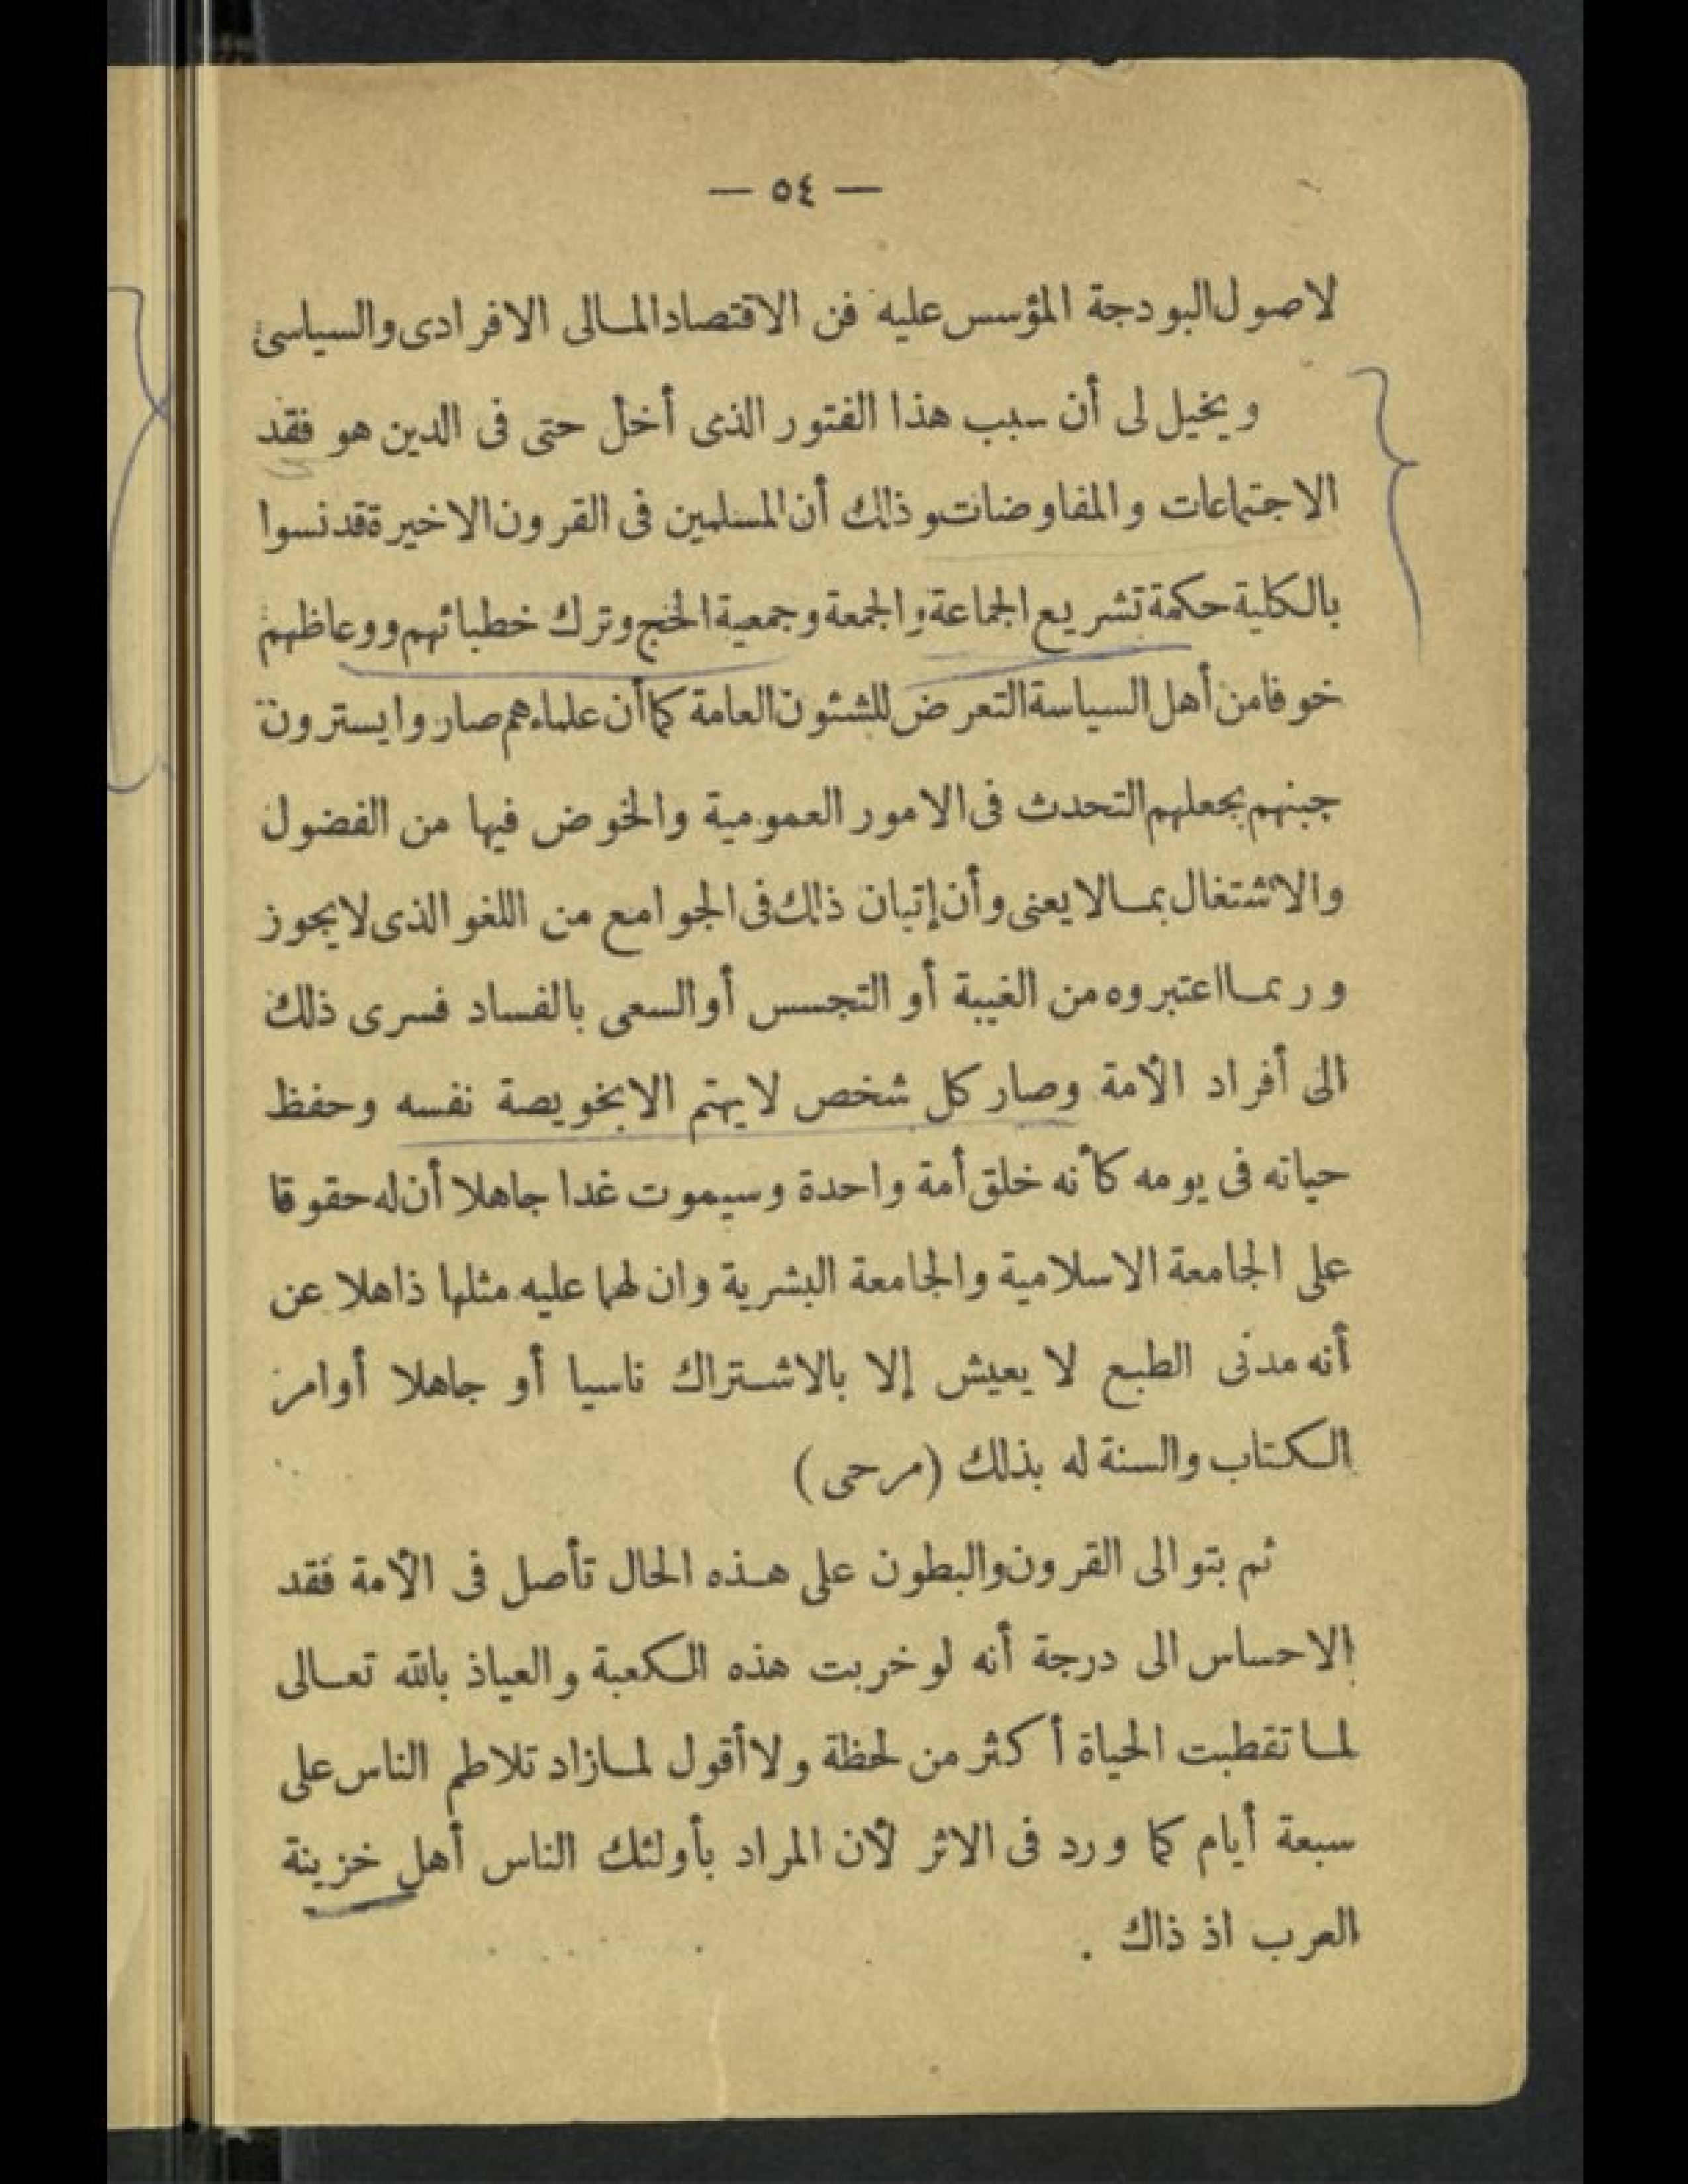 — ٥٤ —
لاصول البودجة المؤسس عليه فن الاقتصاد المالى الافرادى والسياسى
ويخيل لى أن سبب هذا الفتور الذى أخل حتى فى الدين هو فقد
الاجتماعات والمفاوضات وذلك أن المسلمين فى القرون الاخيرة قد نسوا
بالكلية حكمة تشريع الجماعة والجمعة وجمعية الحج وترك خطبائهم ووعاظهم
خوفا من أهل السياسة التعرض للشئون العامة كما أن علماءهم صاروا يسترون
جبنهم بجعلهم التحدث فى الامور العمومية والخوض فيها من الفضول
والاشتغال بمالا يعنى وأن إتيان ذلك فى الجوامع من اللغو الذى لايجوز
وربما اعتبروه من الغيبة أو التجسس أو السعى بالفساد فسرى ذلك
الى أفراد الأمة وصار كل شخص لايهتم الابخويصة نفسه وحفظ
حياته فى يومه كأنه خلق أمة واحدة وسيموت غدا جاهلا أن له حقوقا
على الجامعة الاسلامية والجامعة البشرية وان لهما عليه مثلها ذاهلا عن
أنه مدنى الطبع لا يعيش إلا بالاشتراك ناسيا أو جاهلا أوامر
الكتاب والسنة له بذلك (مرحى)
ثم بتوالى القرون والبطون على هذه الحال تأصل فى الأمة فقد
الاحساس الى درجة أنه لو خربت هذه الكعبة والعياذ بالله تعالى
لما تقطبت الحياة أكثر من لحظة ولا أقول لمازاد تلاطم الناس على
سبعة أيام كما ورد فى الاثر لأن المراد بأولئك الناس أهل خزينة
العرب اذ ذاك .